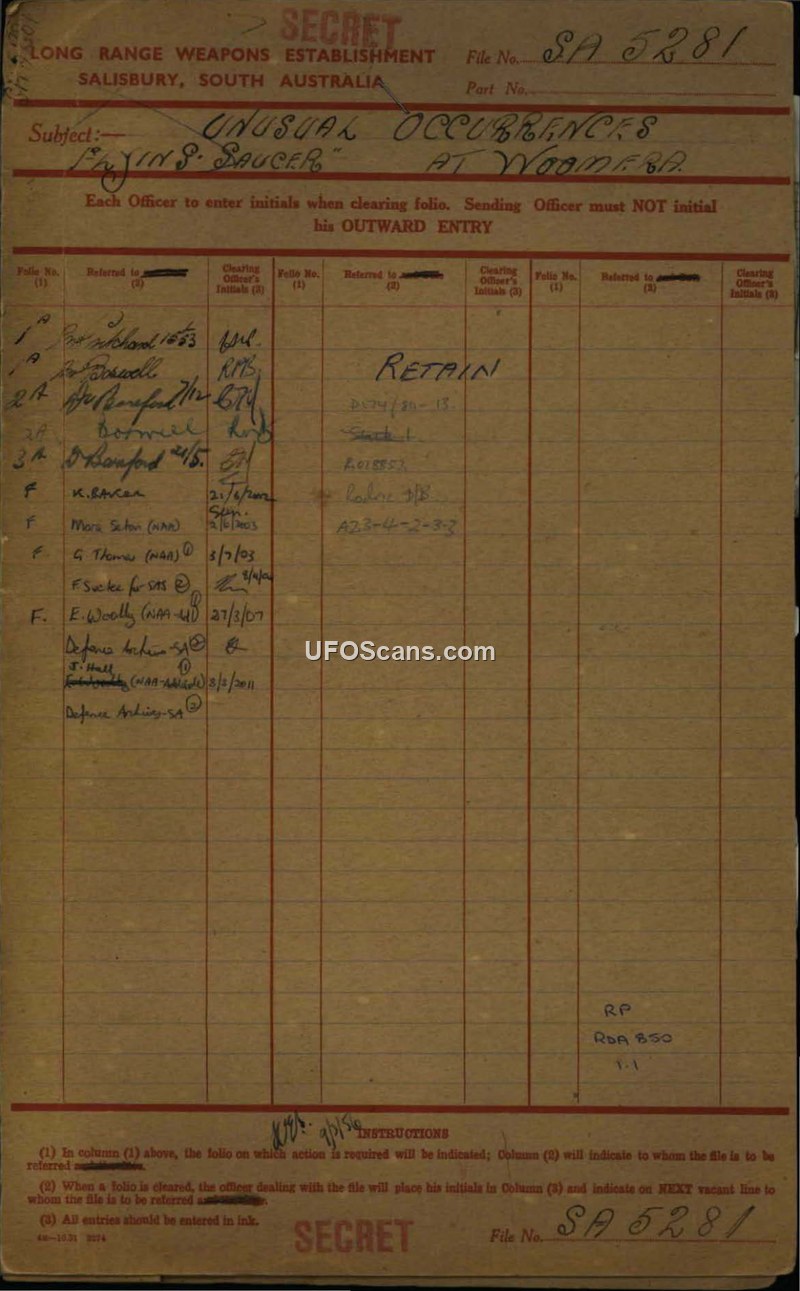 SECRET
LONG RANGE WEAPONS ESTABLISHMENT
SALISBURY, SOUTH AUSTRALIA
File No. SA 5281
Part No.
Subject:— UNUSUAL OCCURRENCES
"FLYING SAUCER" AT WOOMERA.
Each Officer to enter initials when clearing folio. Sending Officer must NOT initial
his OUTWARD ENTRY
Folio No. (1) Referred to (2) Clearing Officer's Initials (3) Folio No. (1) Referred to (2) Clearing Officer's Initials (3) Folio No. (1) Referred to (2) Clearing Officer's Initials (3)
1A
1A Boswell RMB
RETAIN
2A 7/12
D174/811-13
2A Boswell
3A 21/5
F K. BARKER 21/6/2002
F (NAA) 2/6/2003
A23-4-2-3-3
F. G Thomas (NAA) (1) 3/7/03
for SAS (2)
F. E. Woolly (NAA- (1) 27/3/07
Defence Archives-SA (2)
UFOScans.com
J. Hall (1)
3/2/2011
Defence Archives-SA (2)
RP
RDA 850
1.1
INSTRUCTIONS
(1) In column (1) above, the folio on which action is required will be indicated; Column (2) will indicate to whom the file is to be
referred
(2) When a folio is cleared, the officer dealing with the file will place his initials in Column (3) and indicate on NEXT vacant line to
whom the file is to be referred
(3) All entries should be entered in ink.
SECRET
File No. SA 5281